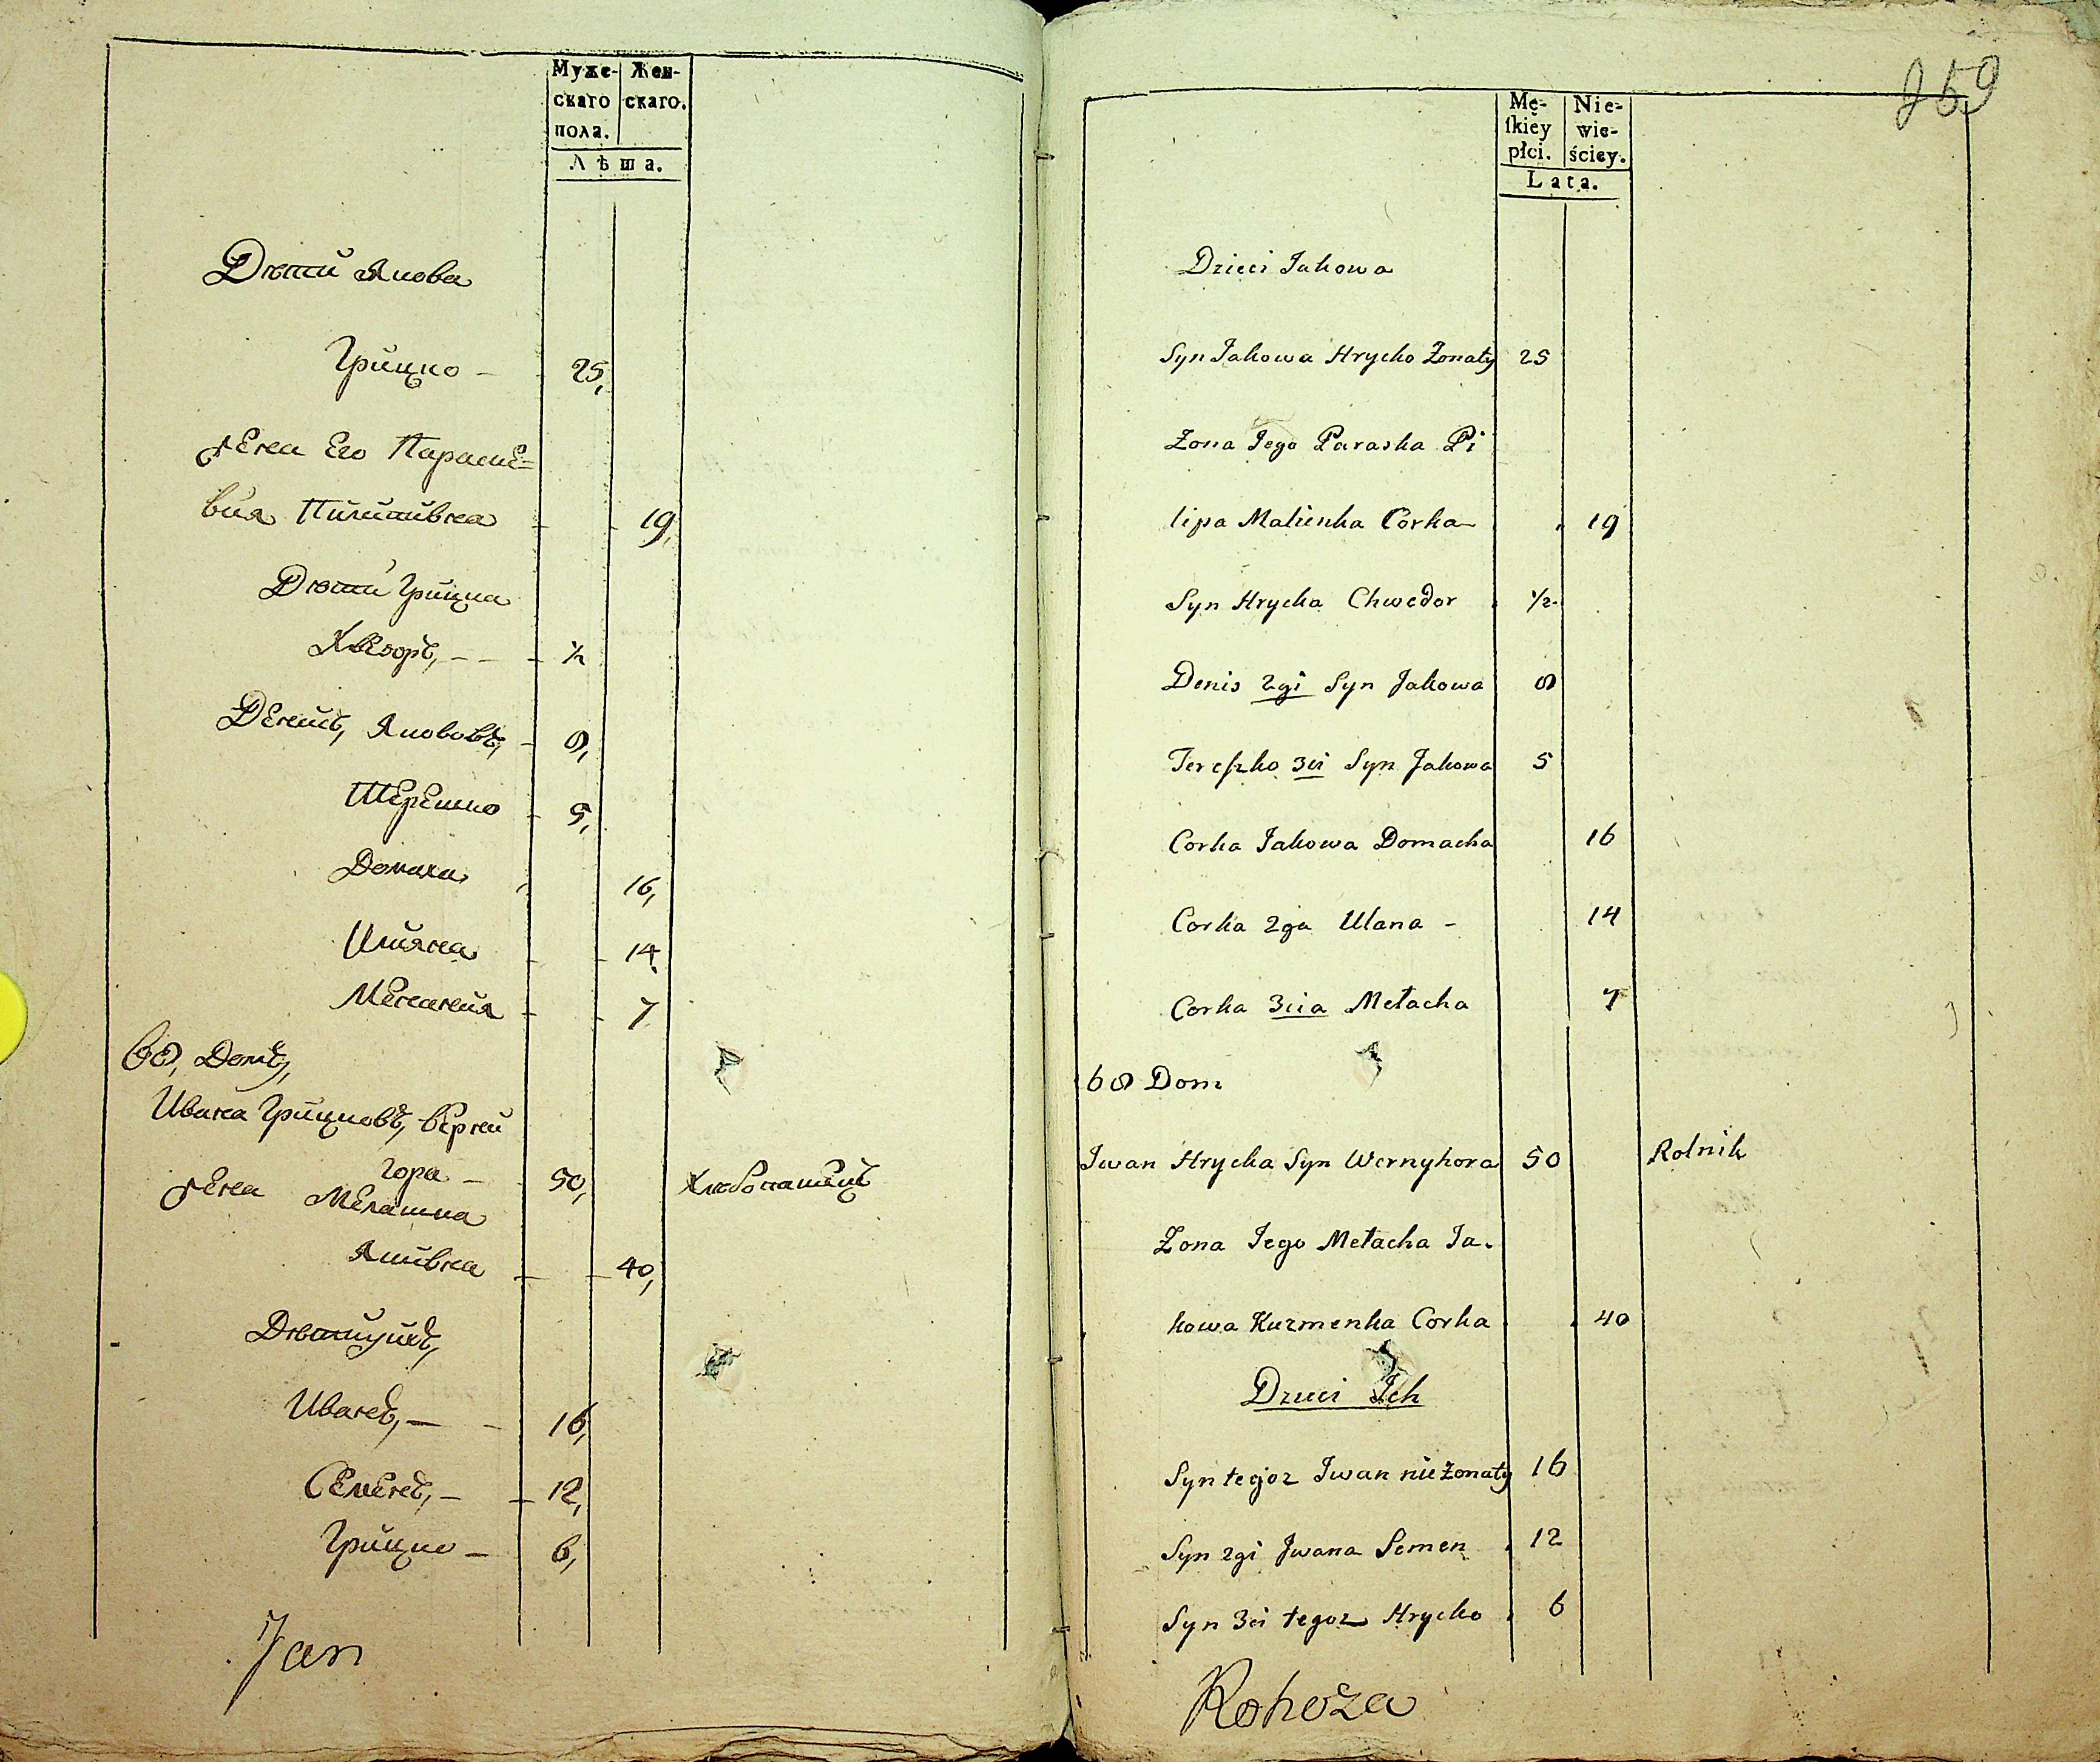 Муже-
скаго
пола.
Жен-
скаго.
Лѣта.
Дѣти Якова
Грицко - 25,
Жена Его Параске=
вия Пилипивна - - 19,
Дѣти Грицка
Хведоръ, - - - ½
Денисъ, Якововъ, - 8,
Терешко - 5,
Домаха, 16,
Ульяна - - 14,
Меланья - - 7
68, Домъ,
Ивана Грицковъ, Верни
гора - 50, Хлебопашецъ
Жена Мелашка
Якивна - - 40,
Дѣти ихъ,
Иванъ, - - 16,
Семенъ, - - 12,
Грицко - 6,
Jan
259
Mę-
ſkiey
płci.
Nie-
wie-
ściey.
Lata.
Dzieci Jakowa
Syn Jakowa Hrycko Żonaty 25
Żona Jego Paraska Pi
lipa Malienka Corka 19
Syn Hrycka Chwedor ½
Denis 2gi Syn Jakowa 8
Tereſzko 3ci Syn Jakowa 5
Corka Jakowa Domacha 16
Corka 2ga Ulana - 14
Corka 3cia Mełacha 7
68 Dom
Jwan Hrycka Syn Wernyhora 50 Rolnik
Żona Jego Mełacha Ja.
kowa Kuzmenka Corka 40
Dzieci Jch
Syn tegoz Jwan nieżonaty 16
Syn 2gi Jwana Semen 12
Syn 3ci tegoz Hrycko 6
Rohoza